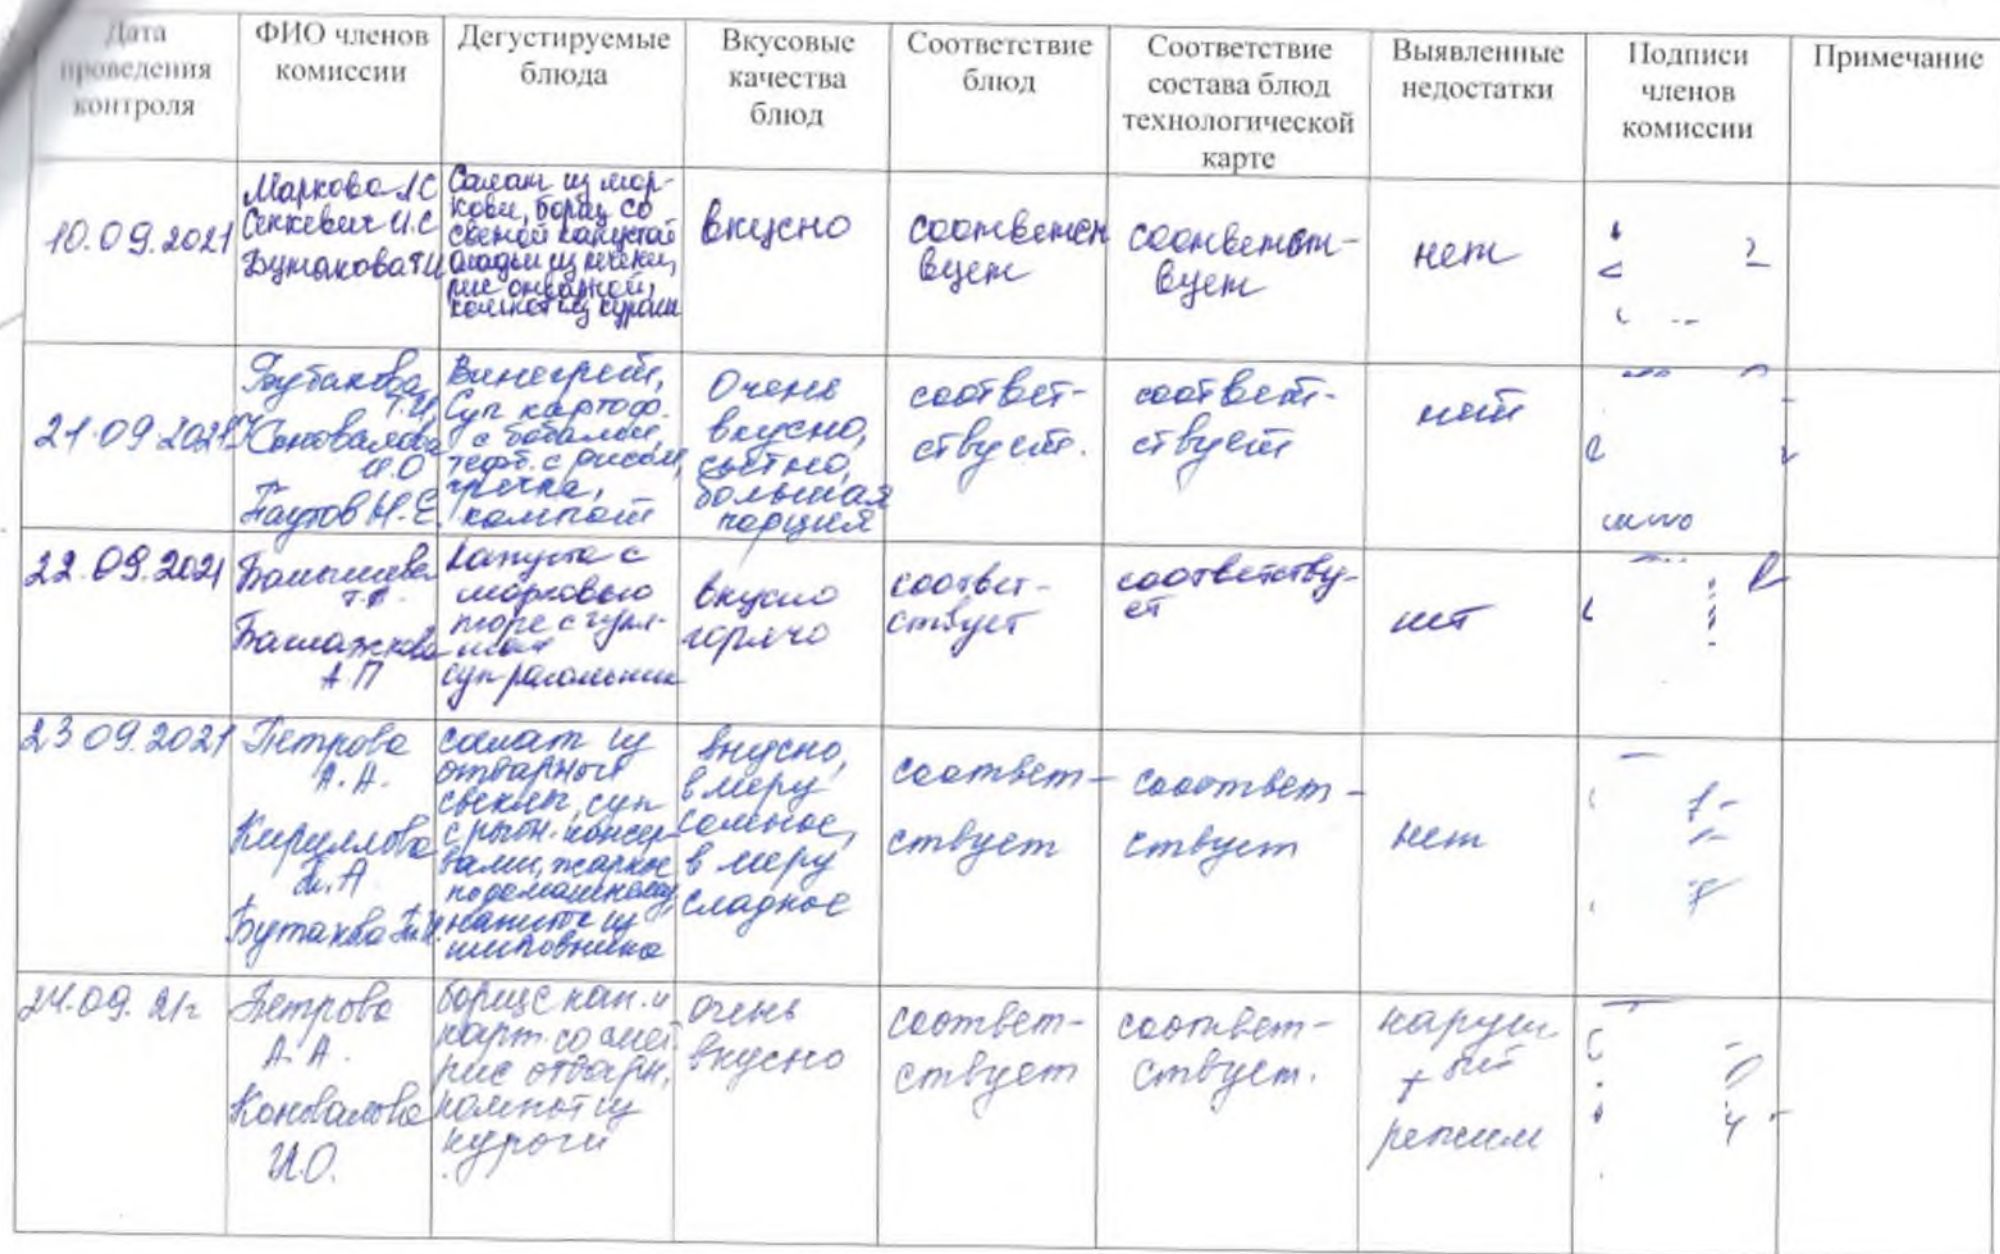 Дата
проведения
контроля
ФИО членов
комиссии
Дегустируемые
блюда
Вкусовые
качества
блюд
Соответствие
блюд
Соответствие
состава блюд
технологической
карте
Выявленные
недостатки
Подписи
членов
комиссии
Примечание
10.09.2021
Маркова
Сенкевич И.С
Бутакова Т.И
Салат из мор-
кови, борщ со
свежей капустой
оладьи из печени,
рис отварной,
компот из кураги
вкусно
соответст
вует
соответст-
вует
нет
21.09.2021
Бутакова
Т.И,
Коновалова
И.О
Паутов Н.Е.
Винегрет,
Суп картоф.
с бобами,
тефт. с рисом,
гречка,
компот
Очень
вкусно,
сытно,
большая
порция
соответ-
ствует.
соответ-
ствует
нет
22.09.2021
А.П
Капуста с
морковью
пюре с гуля-
шом
суп рассольник
вкусно
горячо
соответ-
ствует
соответству-
ет
нет
23 09.2021
Петрова
А.А.
Кириллова
А
Бутакова
салат из
отварной
свеклы, суп
с рыбн. консер-
вами, жаркое
по домашнему,
напиток из
шиповника
вкусно,
в меру
соленое,
в меру
сладкое
соответ-
ствует
соответ-
ствует
нет
24.09.21г
Петрова
А.А.
Коновалова
И.О.
борщ с кап. и
карт. со смет.
рис отварн.
компот из
кураги
очень
вкусно
соответ-
ствует
соответ-
ствует.
наруш
режим